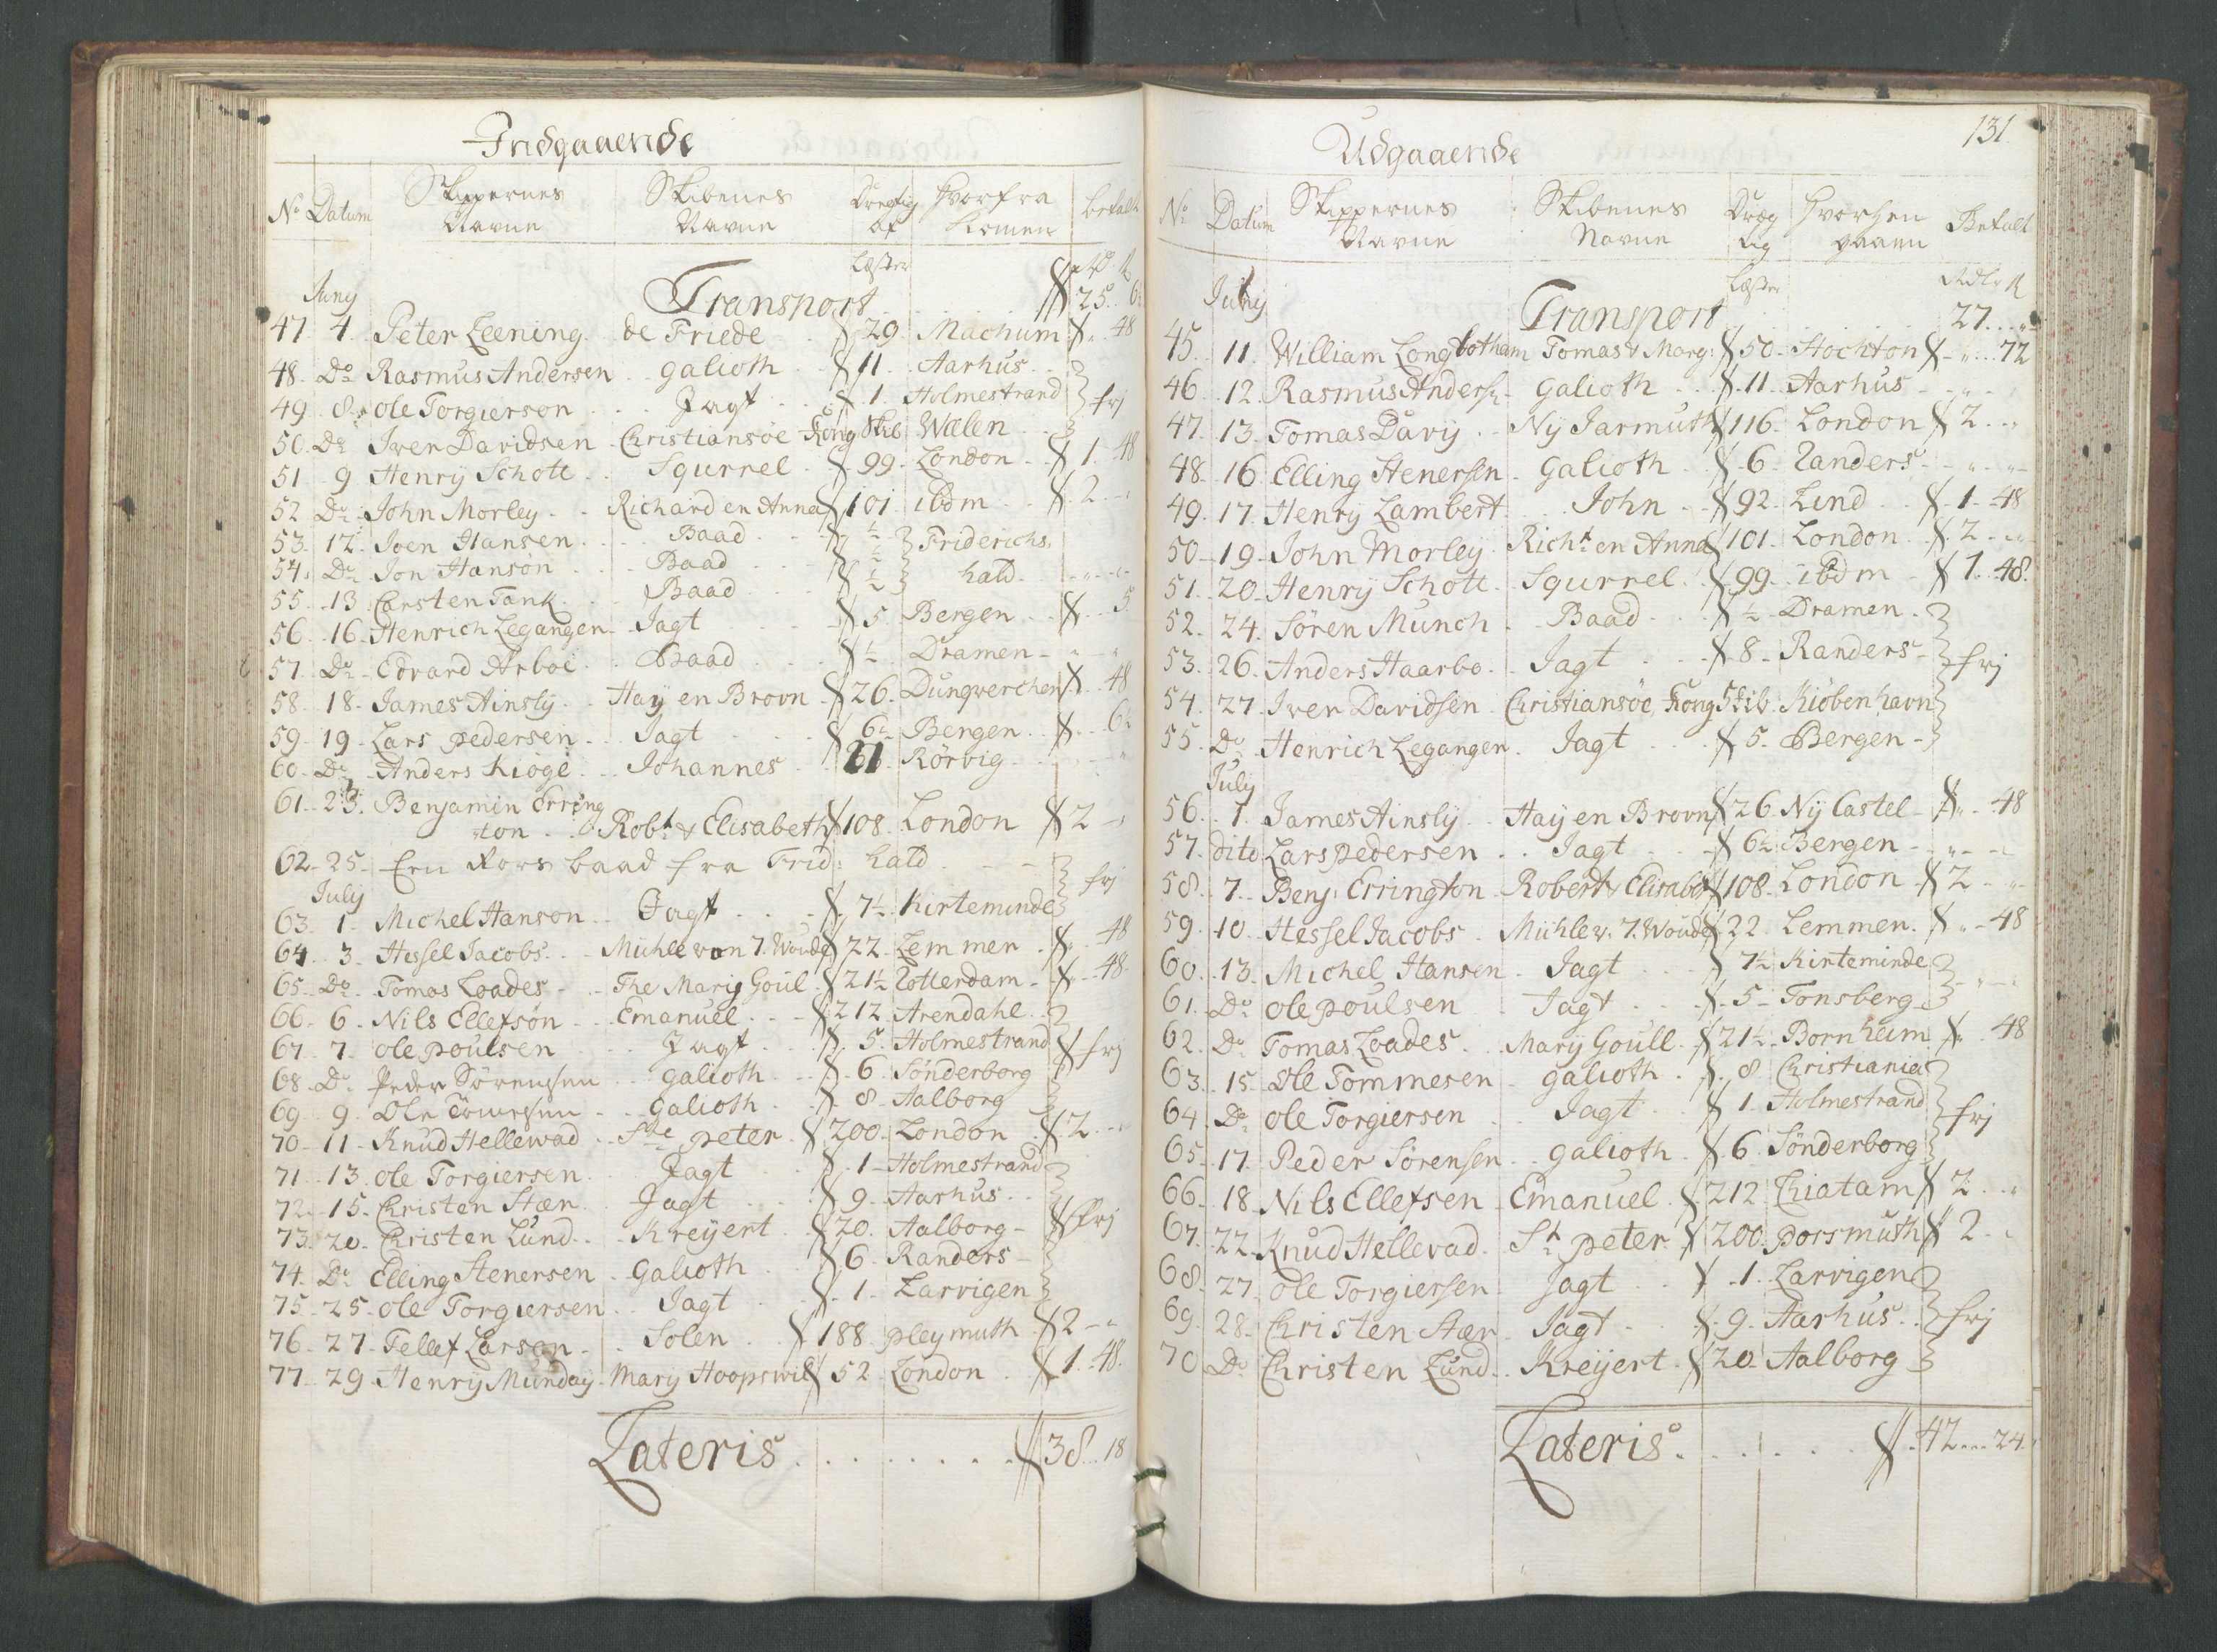 Indgaaende
No Datum Skippernes Navne Skibenes Navne Drægtig af Hvorfra Komen betalt
Læster
Juny Transport 25
47 4. Peter Leening. de Friede 29 Machum „ 48
48. Do Rasmus Andersen galioth 11. Aarhus
49 8. ole Torgierson Jagt 1. Holmestrand frj
50. Do Iver Davidsen Christiansöe Kong Skib Wælen
51 9 Henry Schott Squrrel 99 London 1. 48
52 Do John Morley Richard en Anna 101 ibdm 2
53. 12. Joen Hansen Baad ½ Friderichs.
54. Do Jon Hanson Baad ½ hald
55. 13 Carsten Tank Baad ½
56. 16. Henrich Legangen Jagt 5 Bergen 5
57. Do Edvard Arboe Baad ½ Dramen
58. 18. James Ainsly Hay en Brovn 26. Dunqverchen 48
59 19 Lars pedersen Jagt 6½ Bergen 6½
60. Do Anders Kioge Johannes 21 Rörvig
61. 23. Benjamin Erring
ton Robt & Elisabeth 108. London 2
62. 25. Een Rors baad fra Frid: hald
July frj
63. 1. Michel Hanson Jagt 7½ Kirteminde
64 3. Hessel Jacobs Mühle von 7. Woude 22 Lemmer 48
65 Do Tomas Loades The Mary Goul 21½ Rotterdam 48.
66. 6. Nils Ellefsön Emanuel 212 Arendahl
67. 7. ole poulsen Jagt 5. Holmestrand frj
68. Do Peder Sörensen galioth 6 Sönderborg
69 9. Ole Tomesen galioth 8 Aalborg
70 11 Knud Hellewad Ste peter 200 London 2
71 13. ole Torgiersen Jagt 1 Holmestrand
72. 15. Christen Stær Jagt 9. Aarhus
73. 20. Christen Lund Kreyert 20. Aalborg frj
74. Do Elling Stenersen Galioth 6 Randers
75 25 ole Torgiersen Jagt 1 Larvigen
76 27 Tellef Larson Solen 188 pleymuth 2
77 29 Henry Munday Mary Hoopswil 52 London 1. 48.
Lateris 38. 18
131.
Udgaaende
No Datum Skippernes Navne Skibenes Navne Dræg tig Hvorhen gaaen Betalt
Læster Rdlr
Juny Transport 27
45. 11. William Longbotham Tomas & Marg: 50 Stockton „ 72
46 12. Rasmus Andersen galioth 11 Aarhus
47. 13. Tomas Davy Ny Jarmuth 116. London 2
48. 16 Elling Stenersen Galioth 6 Randers
49. 17. Henry Lambert John 92 Lind 1. 48
50 19. John Morley Richt en Anna 101 London 2
51. 20 Henry Schott Squrrel 99 ibdm 1. 48.
52. 24. Sören Munch Baad ½ Dramen
53. 26. Anders Haarbo Jagt 8 Randers frj
54. 27. Iver Davidsen Christiansöe Kong Skib Kiöbenhavn
55. Do Henrich Legangen Jagt 5. Bergen
July
56. 1. James Ainsly Hay en Brovn 26 Ny Castel 48
57. dito Lars pedersen Jagt 6½ Bergen
58. 7. Benj: Errington Robert & Elisabet 108. London 2
59. 10. Hessel Jacobs Mühle v. 7. Woude 22 Lemmen 48
60. 13. Michel Hansen Jagt 7½ Kirteminde
61. Do ole poulsen Jagt 5 Tonsberg
62. Do Tomas Loades Mary Goull 21½ Bornheim 48
63. 15. Ole Tommesen galioth 8 Christiania
64. Do ole Torgiersen Jagt 1 Holmestrand frj
65. 17. Peder Sörensen galioth 6 Sönderborg
66. 18 Nils Ellefsen Emanuel 212 Chiatam 2
67. 22. Knud Hellevad St peter 200. porsmuth 2
68. 27. ole Torgiersen Jagt 1. Larvigen
69. 28. Christen Stær Jagt 9. Aarhus frj
70 Do Christen Lund Kreyert 20 Aalborg
Lateris 42 24.